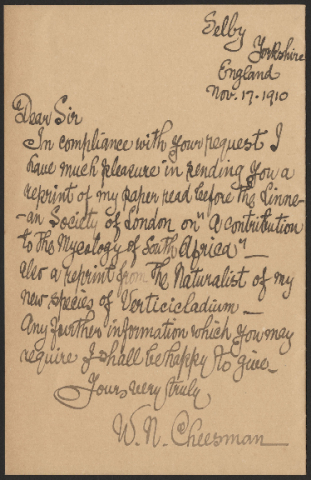 Selby
Yorkshire
England
Nov. 17. 1910
Dear Sir
In compliance with your request I
have much pleasure in sending you a
reprint of my paper read before the Linne-
-an Society of London on "A contribution
to the Mycology of South Africa" —
also a reprint from The Naturalist of my
new species of Verticicladium —
Any further information which you may
require I shall be happy to give —
Yours very truly
W. N. Cheesman